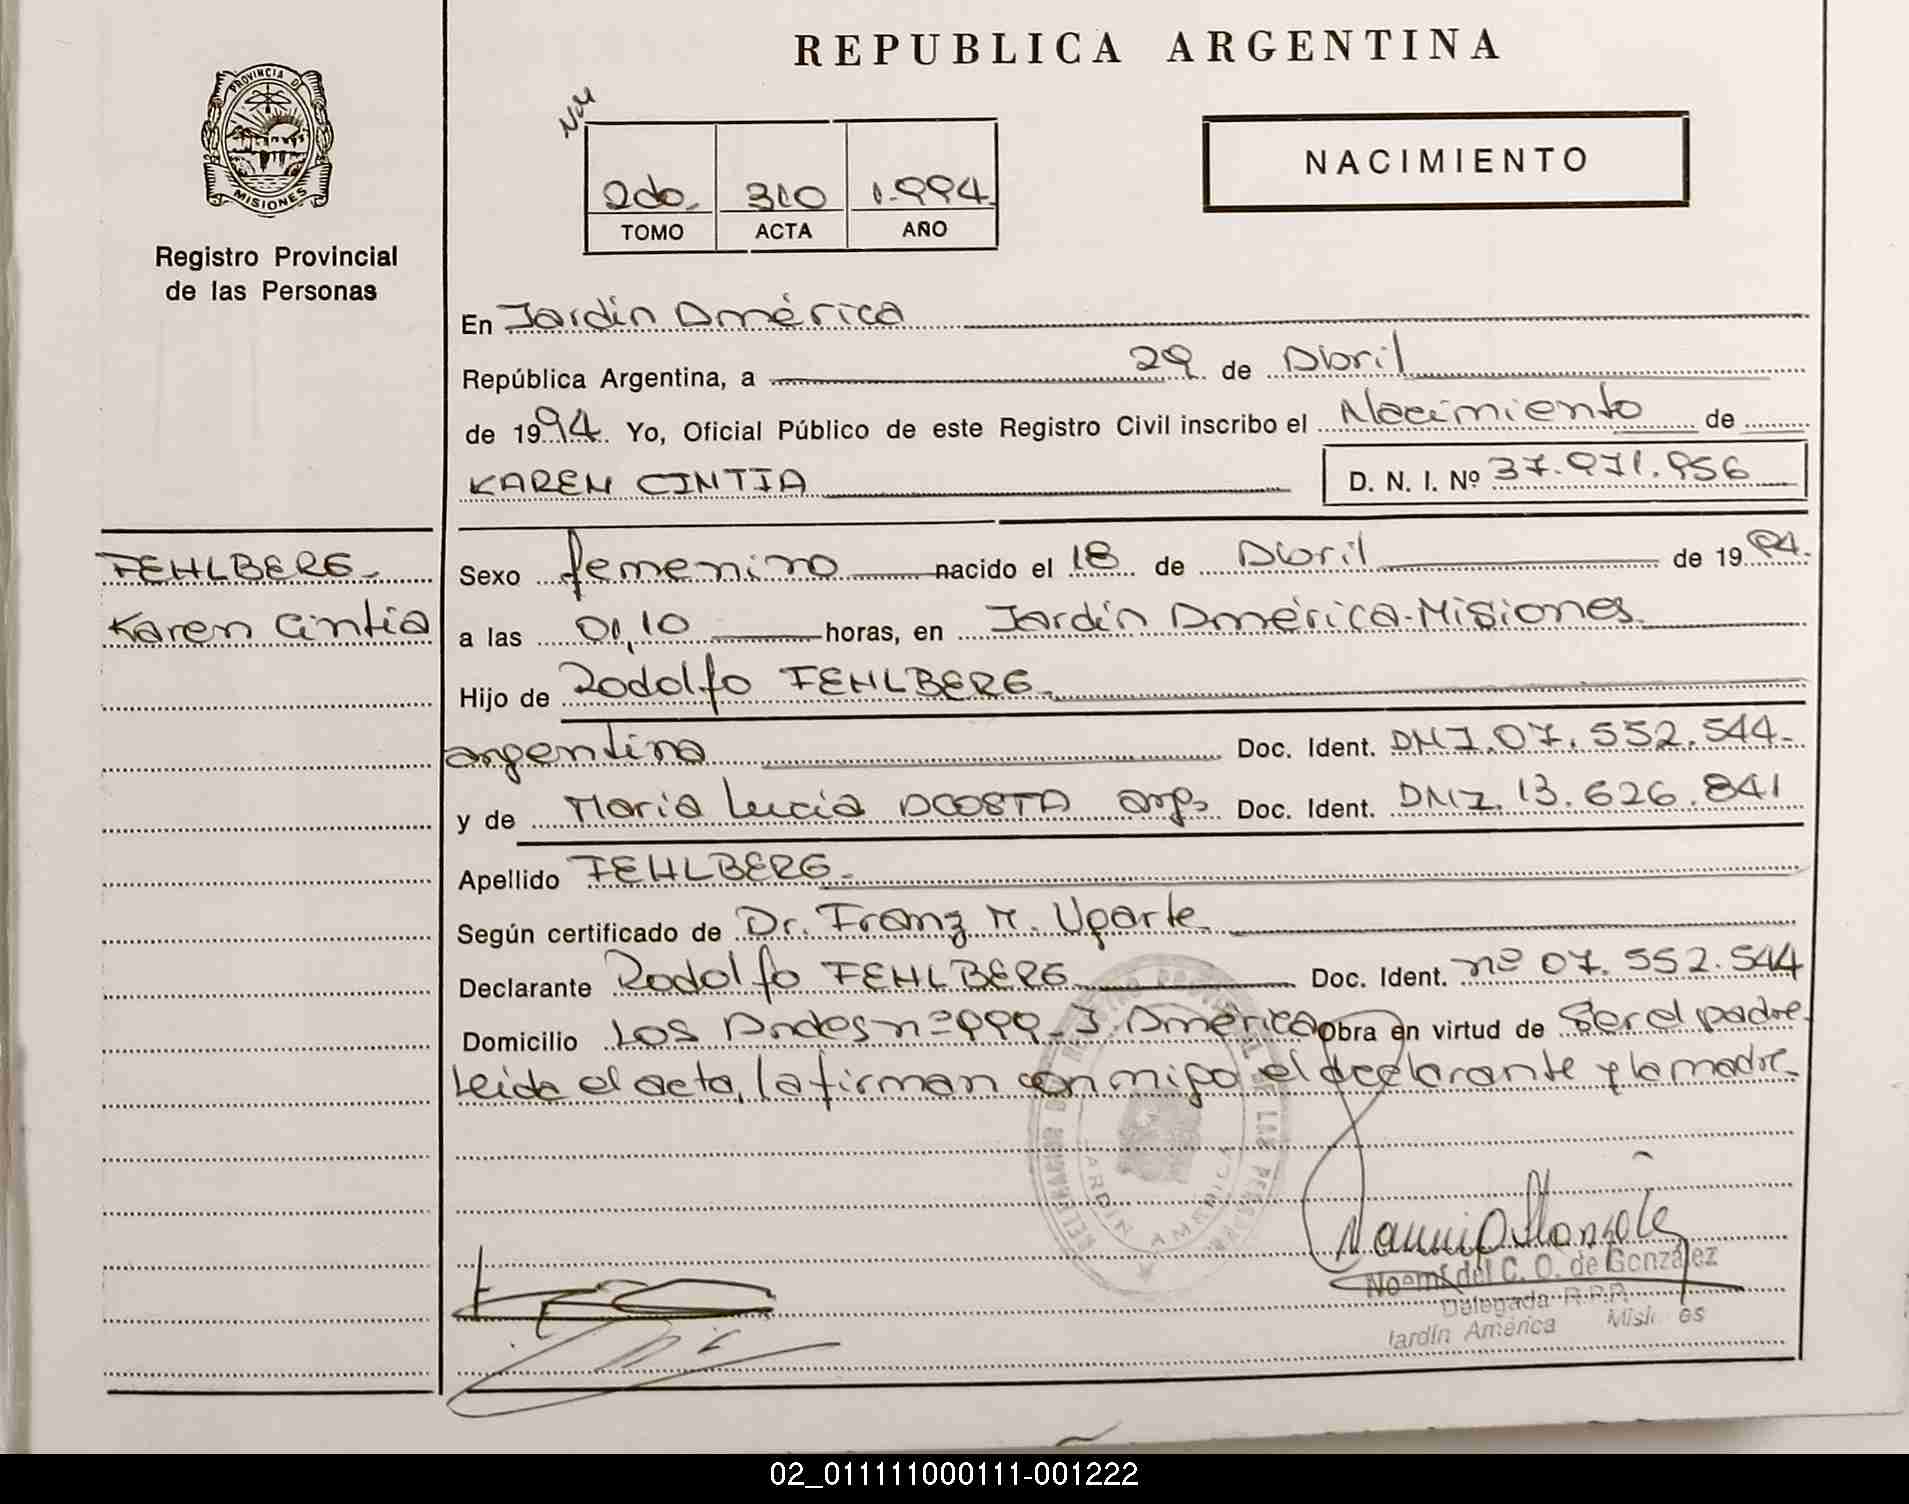 REPUBLICA ARGENTINA
PROVINCIA DE
MISIONES
Registro Provincial
de las Personas
2do. 310 1.994.
TOMO ACTA AÑO
NACIMIENTO
En Jardín América
República Argentina, a 29 de Abril
de 1994. Yo, Oficial Público de este Registro Civil inscribo el Nacimiento de
KAREN CINTIA D. N. I. Nº 37.971.956
FEHLBERG.
Karen Cintia
Sexo femenino nacido el 18 de Abril de 1994.
a las 01,10 horas, en Jardín América-Misiones.
Hijo de Rodolfo FEHLBERG.
argentino Doc. Ident. DNI.07.552.544.
y de Maria Lucia ACOSTA arg. Doc. Ident. DNI.13.626.841
Apellido FEHLBERG.
Según certificado de Dr. Franz M. Ugarte.
Declarante Rodolfo FEHLBERG Doc. Ident. nº 07.552.544
Domicilio Los Andes nº 999-J. América Obra en virtud de Ser el padre.
Leida el acta, la firman conmigo el declarante y la madre.
JARDIN AMERICA
Noemí del C. O. de González
Delegada R.P.P.
Jardín América